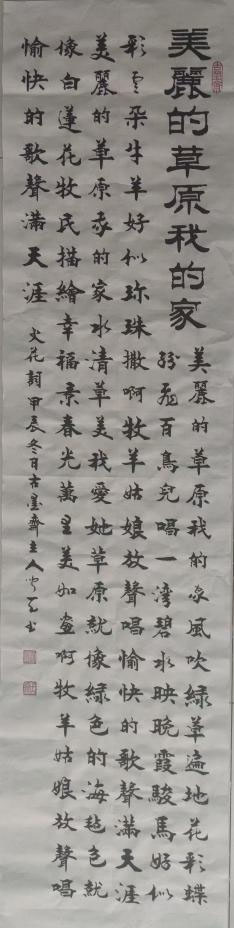 美麗的草原我的家
美麗的草原我的家風吹綠草遍地花彩蝶
紛飛百鳥兒唱一灣碧水映晚霞駿馬好似
彩雲朵牛羊好似珍珠撒啊牧羊姑娘放聲唱愉快的歌聲滿天涯
美麗的草原我的家水清草美我愛她草原就像綠色的海氈包就
像白蓮花牧民描繪幸福景春光萬里美如畫啊牧羊姑娘放聲唱
愉快的歌聲滿天涯
火花詞甲辰冬日古墨齋主人書